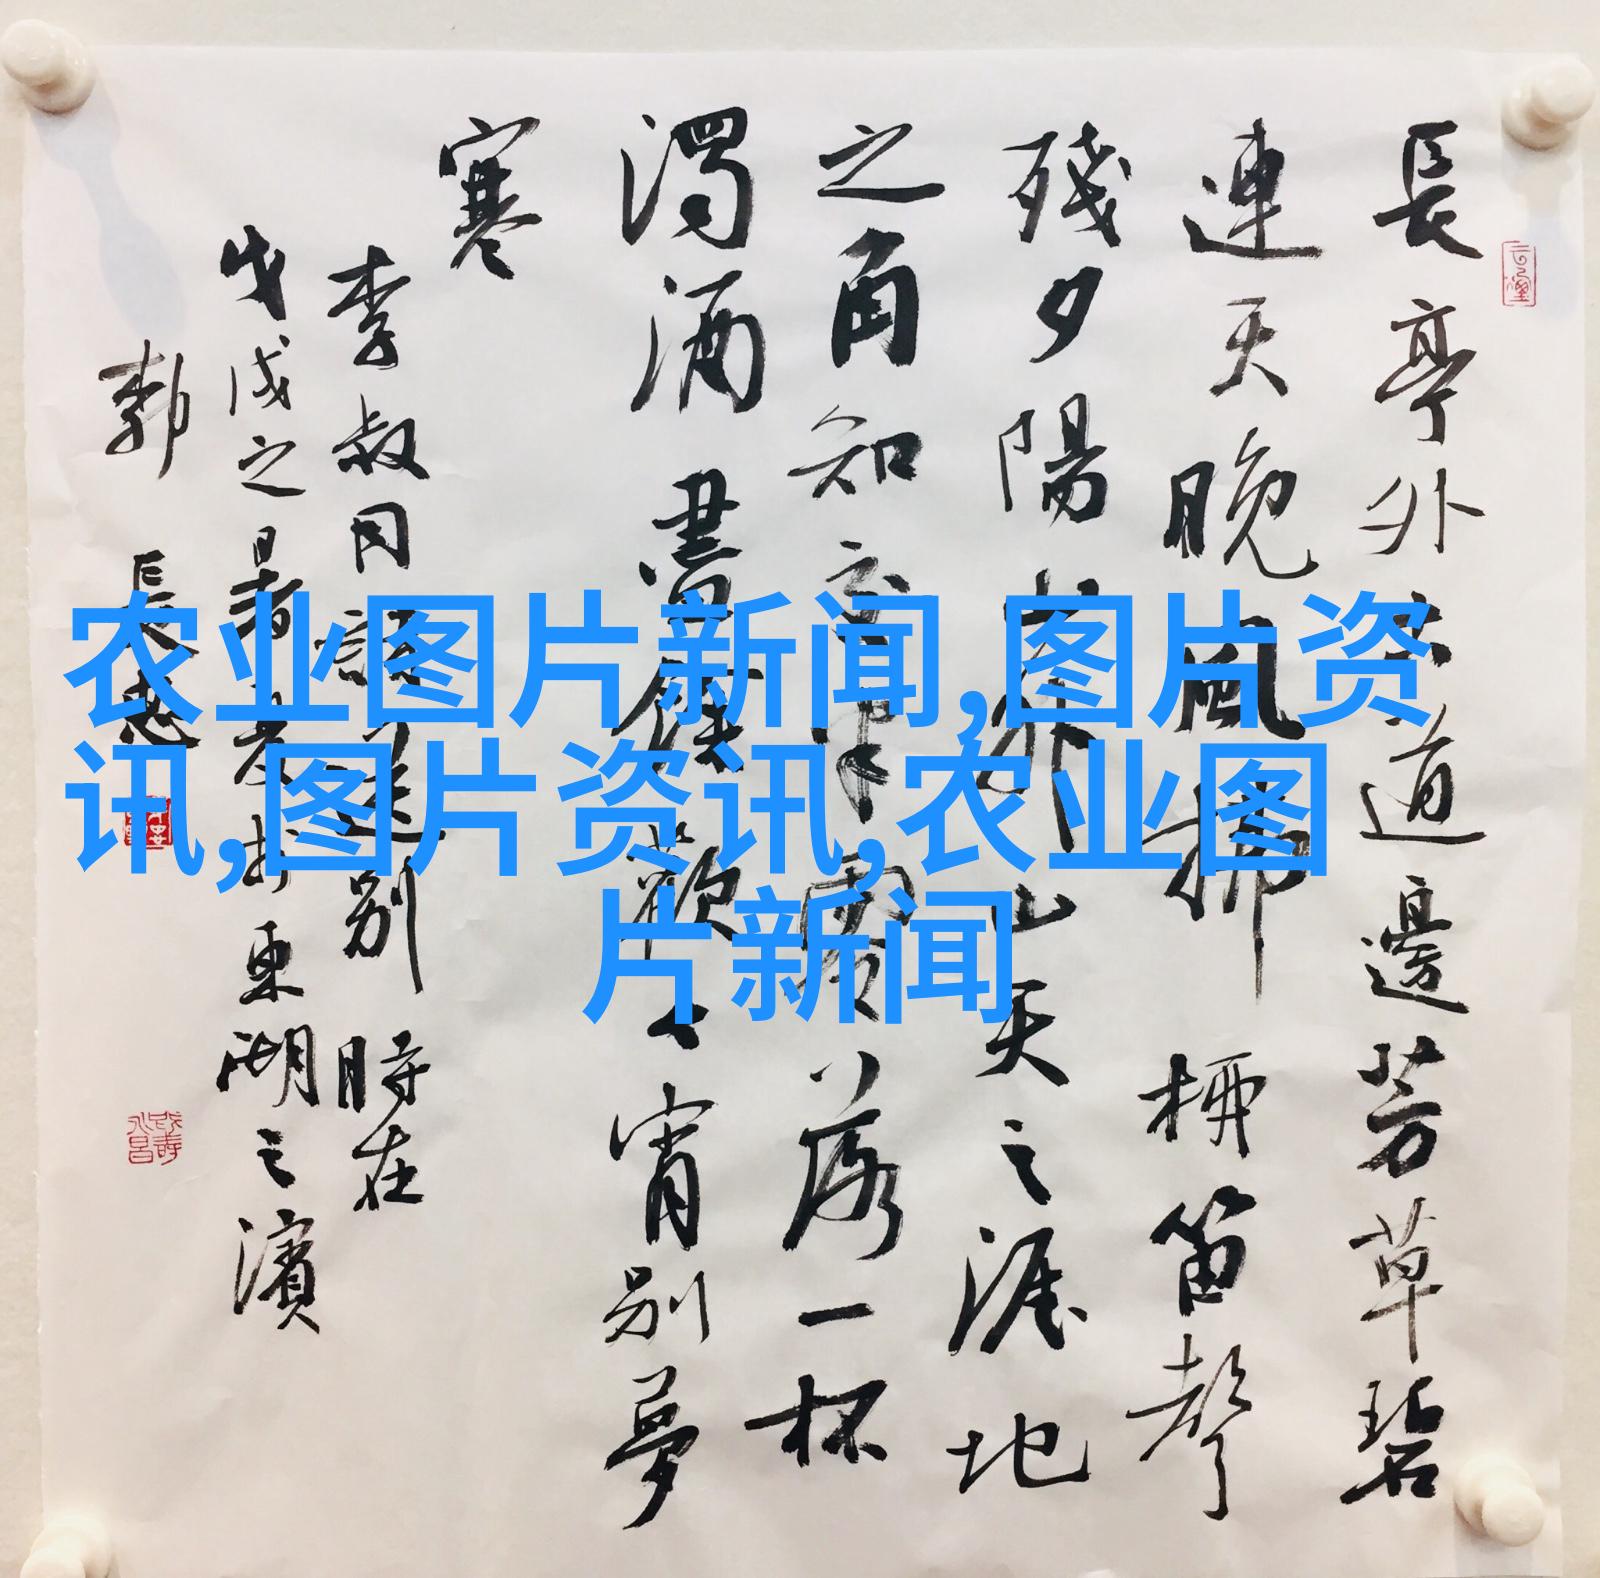 長亭外古道邊芳草碧
連天晚風拂柳笛聲
殘夕陽山外山天之涯地
之角知交半零落一杯
濁酒盡餘歡今宵別夢
寒
李叔同詞送別 時在
戊戌之暑於東湖之濱
長忠
农业图片新闻,图片资
讯,图片资讯,农业图
片新闻